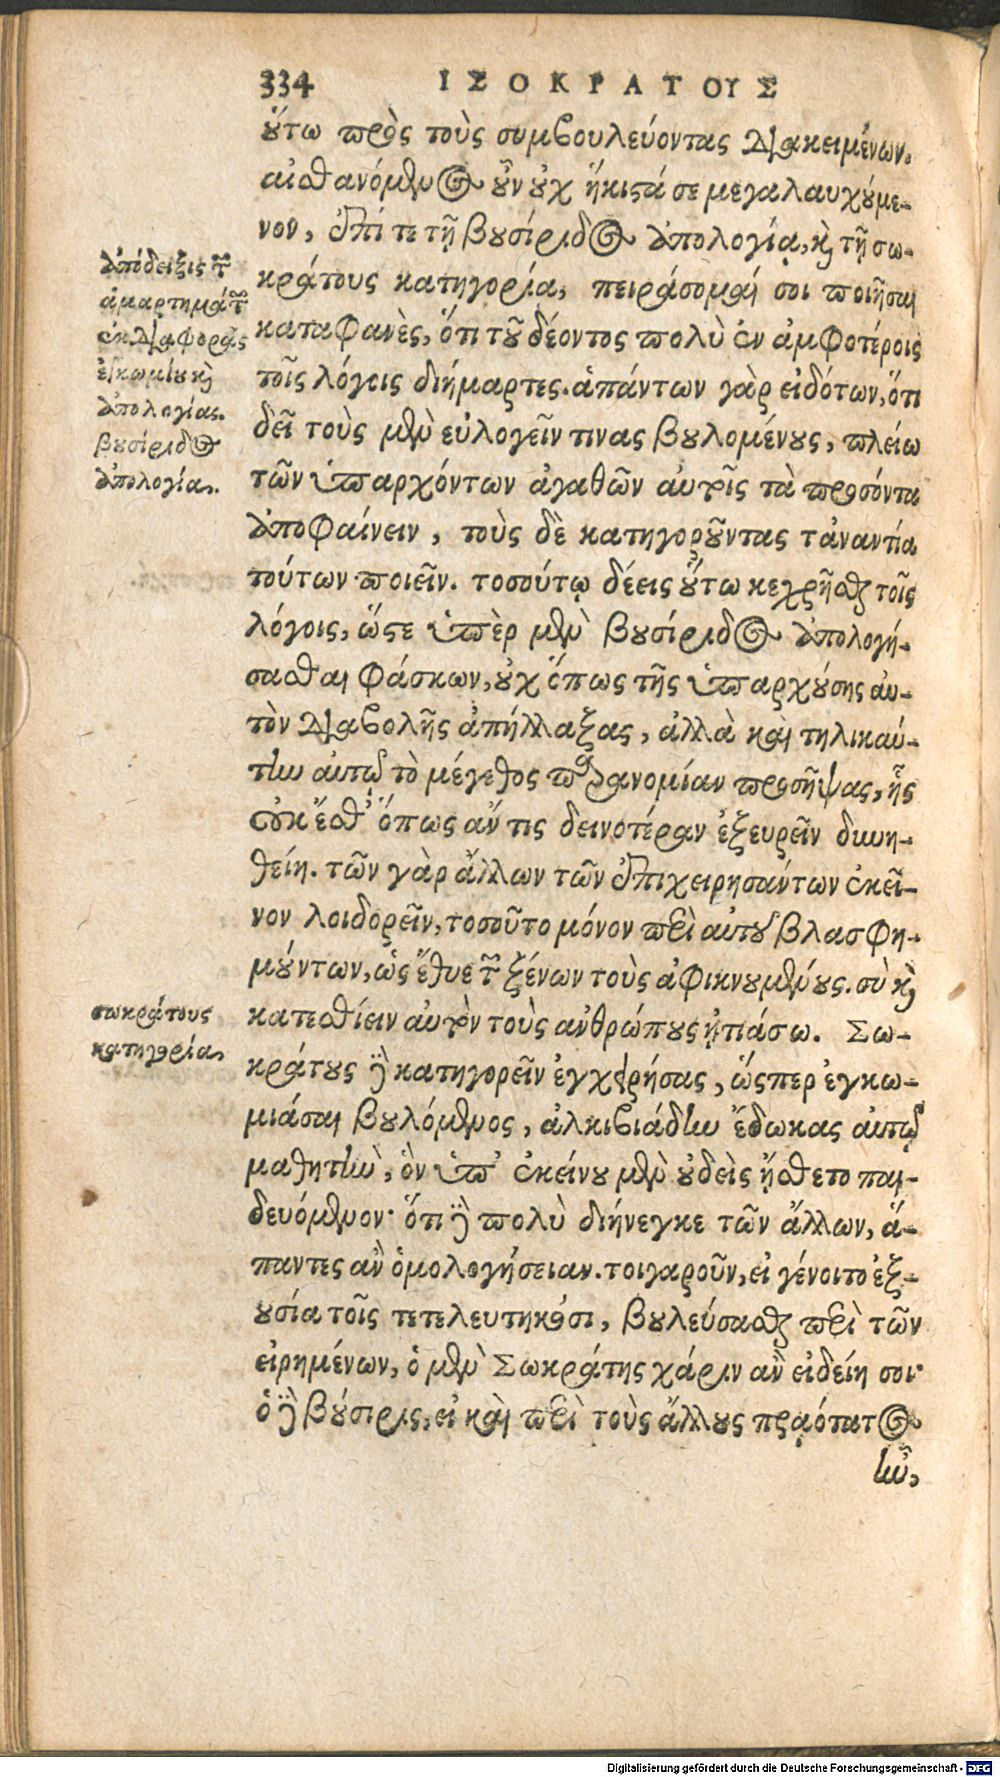 334 ΙΣΟΚΡΑΤΟΥΣ
ὕτω πρὸς τοὺς συμβουλεύοντας διακειμένων.
αἰσθανόμενος οὖν οὐχ ἥκιστά σε μεγαλαυχούμε-
νον, ἐπί τε τῇ βυσίριδος ἀπολογίᾳ, καὶ τῇ σω-
κράτους κατηγορία, πειράσομαί σοι ποιῆσαι
καταφανὲς, ὅτι τοῦ δέοντος πολὺ ἐν ἀμφοτέροις
τοῖς λόγοις διήμαρτες. ἁπάντων γὰρ εἰδότων, ὅτι
δεῖ τοὺς μὲν εὐλογεῖν τινας βουλομένους, πλείω
τῶν ὑπαρχόντων ἀγαθῶν αὐτοῖς τὰ προσόντα
ἀποφαίνειν, τοὺς δὲ κατηγοροῦντας τἀναντία
τούτων ποιεῖν. τοσούτῳ δέεις οὕτω κεχρῆσθαι τοῖς
λόγοις, ὥστε ὑπὲρ μὲν βουσίριδος ἀπολογή-
σασθαι φάσκων, οὐχ ὅπως τῆς ὑπαρχούσης αὐ-
τὸν διαβολῆς ἀπήλλαξας, ἀλλὰ καὶ τηλικαύ-
την αὐτῷ τὸ μέγεθος παρανομίαν προσῆψας, ἧς
οὐκ ἔσθ' ὅπως ἄν τις δεινοτέραν ἐξευρεῖν δυνη-
θείη. τῶν γὰρ ἄλλων τῶν ἐπιχειρησάντων ἐκεῖ-
νον λοιδορεῖν, τοσοῦτο μόνον περὶ αὐτοῦ βλασφη-
μούντων, ὡς ἔθυε τῶν ξένων τοὺς ἀφικνουμένους. σὺ καὶ
κατεσθίειν αὐτὸν τοὺς ἀνθρώπους ᾐτιάσω. Σω-
κράτους δὲ κατηγορεῖν ἐγχειρήσας, ὥσπερ ἐγκω-
μιάσαι βουλόμενος, ἀλκιβιάδην ἔδωκας αὐτῷ
μαθητὴν, ὃν ὑπ' ἐκείνου μὲν οὐδεὶς ᾔσθετο παι-
δευόμενον· ὅτι δὲ πολὺ διήνεγκε τῶν ἄλλων, ἅ-
παντες ἂν ὁμολογήσειαν. τοιγαροῦν, εἰ γένοιτο ἐξ-
ουσία τοῖς τετελευτηκόσι, βουλεύσασθαι περὶ τῶν
εἰρημένων, ὁ μὲν Σωκράτης χάριν ἂν εἰδείη σοι·
ὁ δὲ βούσιρις, εἰ καὶ περὶ τοὺς ἄλλους πρᾳότατος
ἦν,
ἀπόδειξις τῶν
ἁμαρτημάτων
ἐκ διαφορᾶς
ἐγκωμίου καὶ
ἀπολογίας.
βουσίριδος
ἀπολογία.
σωκράτους
κατηγορία.
Digitalisierung gefördert durch die Deutsche Forschungsgemeinschaft - DFG